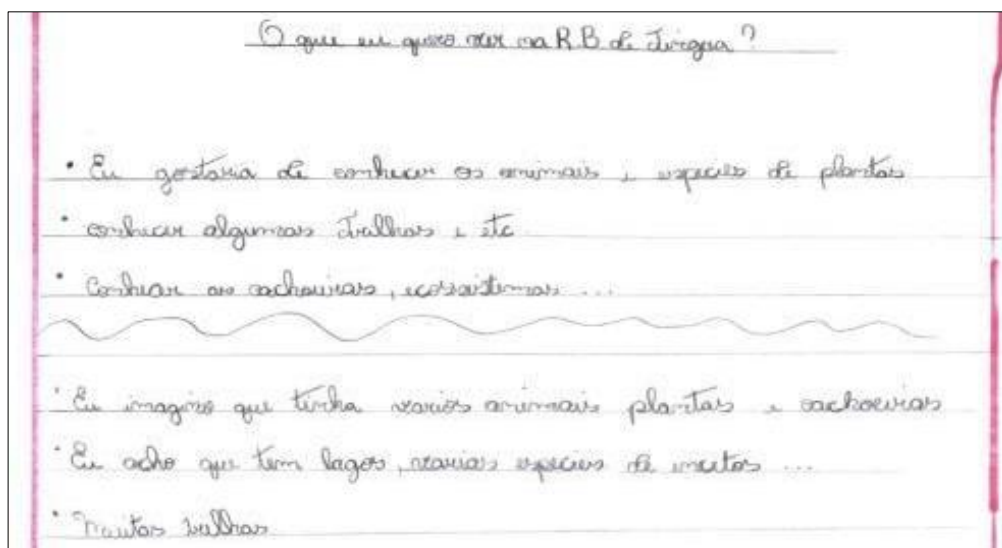 O que eu quero ver na R.B de Tinguá?
• Eu gostaria de conhecer os animais e especies de plantas
• conhecer algumas trilhas e etc
• Conhecer as cachoeiras, ecossistemas ...
• Eu imagino que tenha varios animais plantas e cachoeiras
• Eu acho que tem lagos, varias especies de insetos ...
• Muitas trilhas